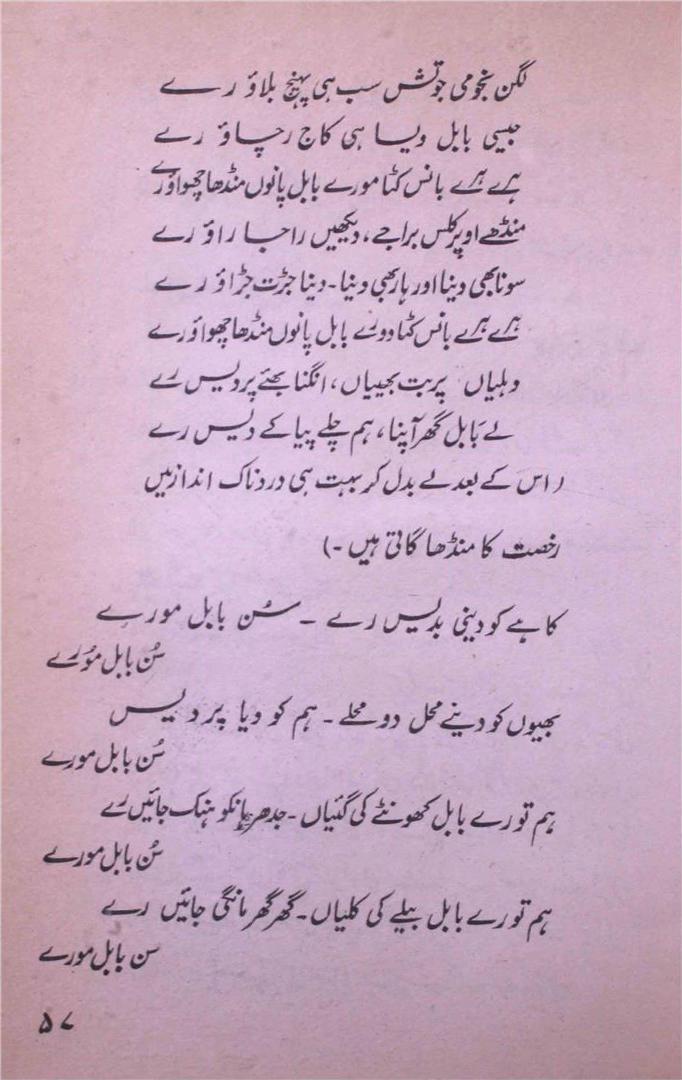 لگن نجومی جوتش سب ہی پہنچ بلاؤ رے
جیسی بابل ویسا ہی کاج رچاؤ رے
ہرے ہرے بانس کٹا مورے بابل پانوں منڈھا چھواؤ رے
منڈھے اوپر کلس براجے، دیکھیں راجا راؤ رے
سونا بھی دینا اور ہار بھی دینا۔ دینا جڑت جڑاؤ رے
ہرے ہرے بانس کٹا دو رے بابل پانوں منڈھا چھواؤ رے
دہلیاں پربت بھیاں، انگنا بھئے پردیس رے
لے بابل گھر آپنا، ہم چلے پیا کے دیس رے
(اس کے بعد لے بدل کر بہت ہی دردناک انداز میں
رخصت کا منڈھا گاتی ہیں ۔)
کاہے کو دینی بدیس رے ۔ سُن بابل مورے
سُن بابل مورے
بھیوں کو دینے محل دو محلے ۔ ہم کو دیا پردیس
سُن بابل مورے
ہم تو رے بابل کھونٹے کی گئیاں ۔ جدھر ہانکو ہنک جائیں رے
سُن بابل مورے
ہم تو رے بابل بیلے کی کلیاں ۔ گھر گھر مانگی جائیں رے
سن بابل مورے
۵۷